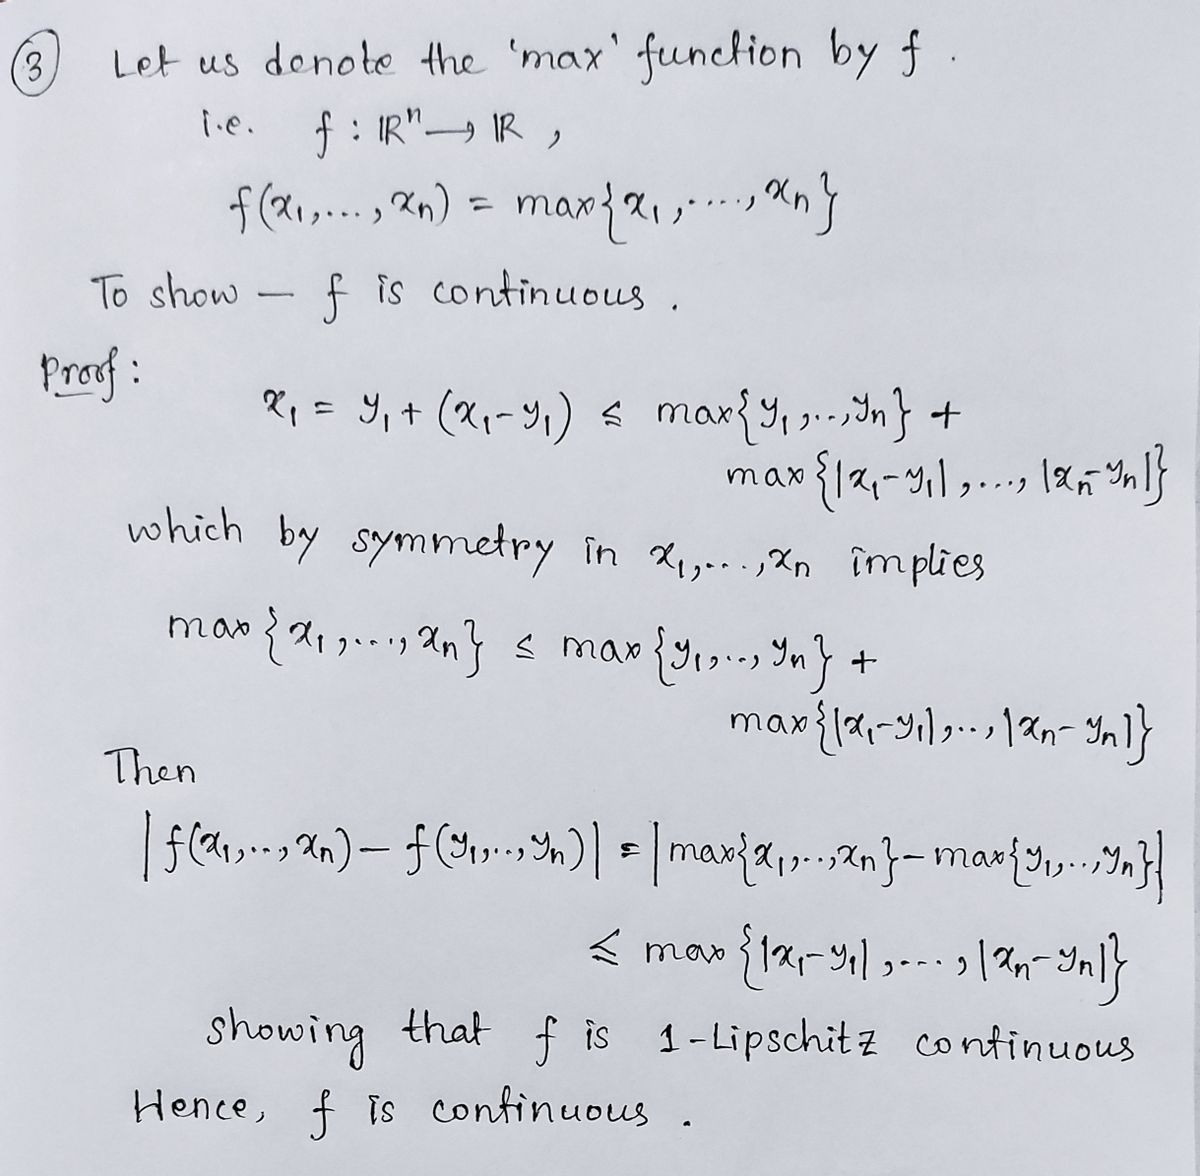 ③ Let us denote the 'max' function by f.
i.e. f : ℝⁿ → ℝ ,
f(x₁,...,xₙ) = max{x₁,....,xₙ}
To show — f is continuous.
Proof :
x₁ = y₁ + (x₁-y₁) ≤ max{y₁,..,yₙ} +
max{|x₁-y₁|,...,|xₙ-yₙ|}
which by symmetry in x₁,...,xₙ implies
max{x₁,...,xₙ} ≤ max{y₁,..,yₙ} +
max{|x₁-y₁|,..,|xₙ-yₙ|}
Then
|f(x₁,..,xₙ) - f(y₁,..,yₙ)| = |max{x₁,..,xₙ} - max{y₁,..,yₙ}|
≤ max{|x₁-y₁|,....,|xₙ-yₙ|}
showing that f is 1-Lipschitz continuous
Hence, f is continuous.